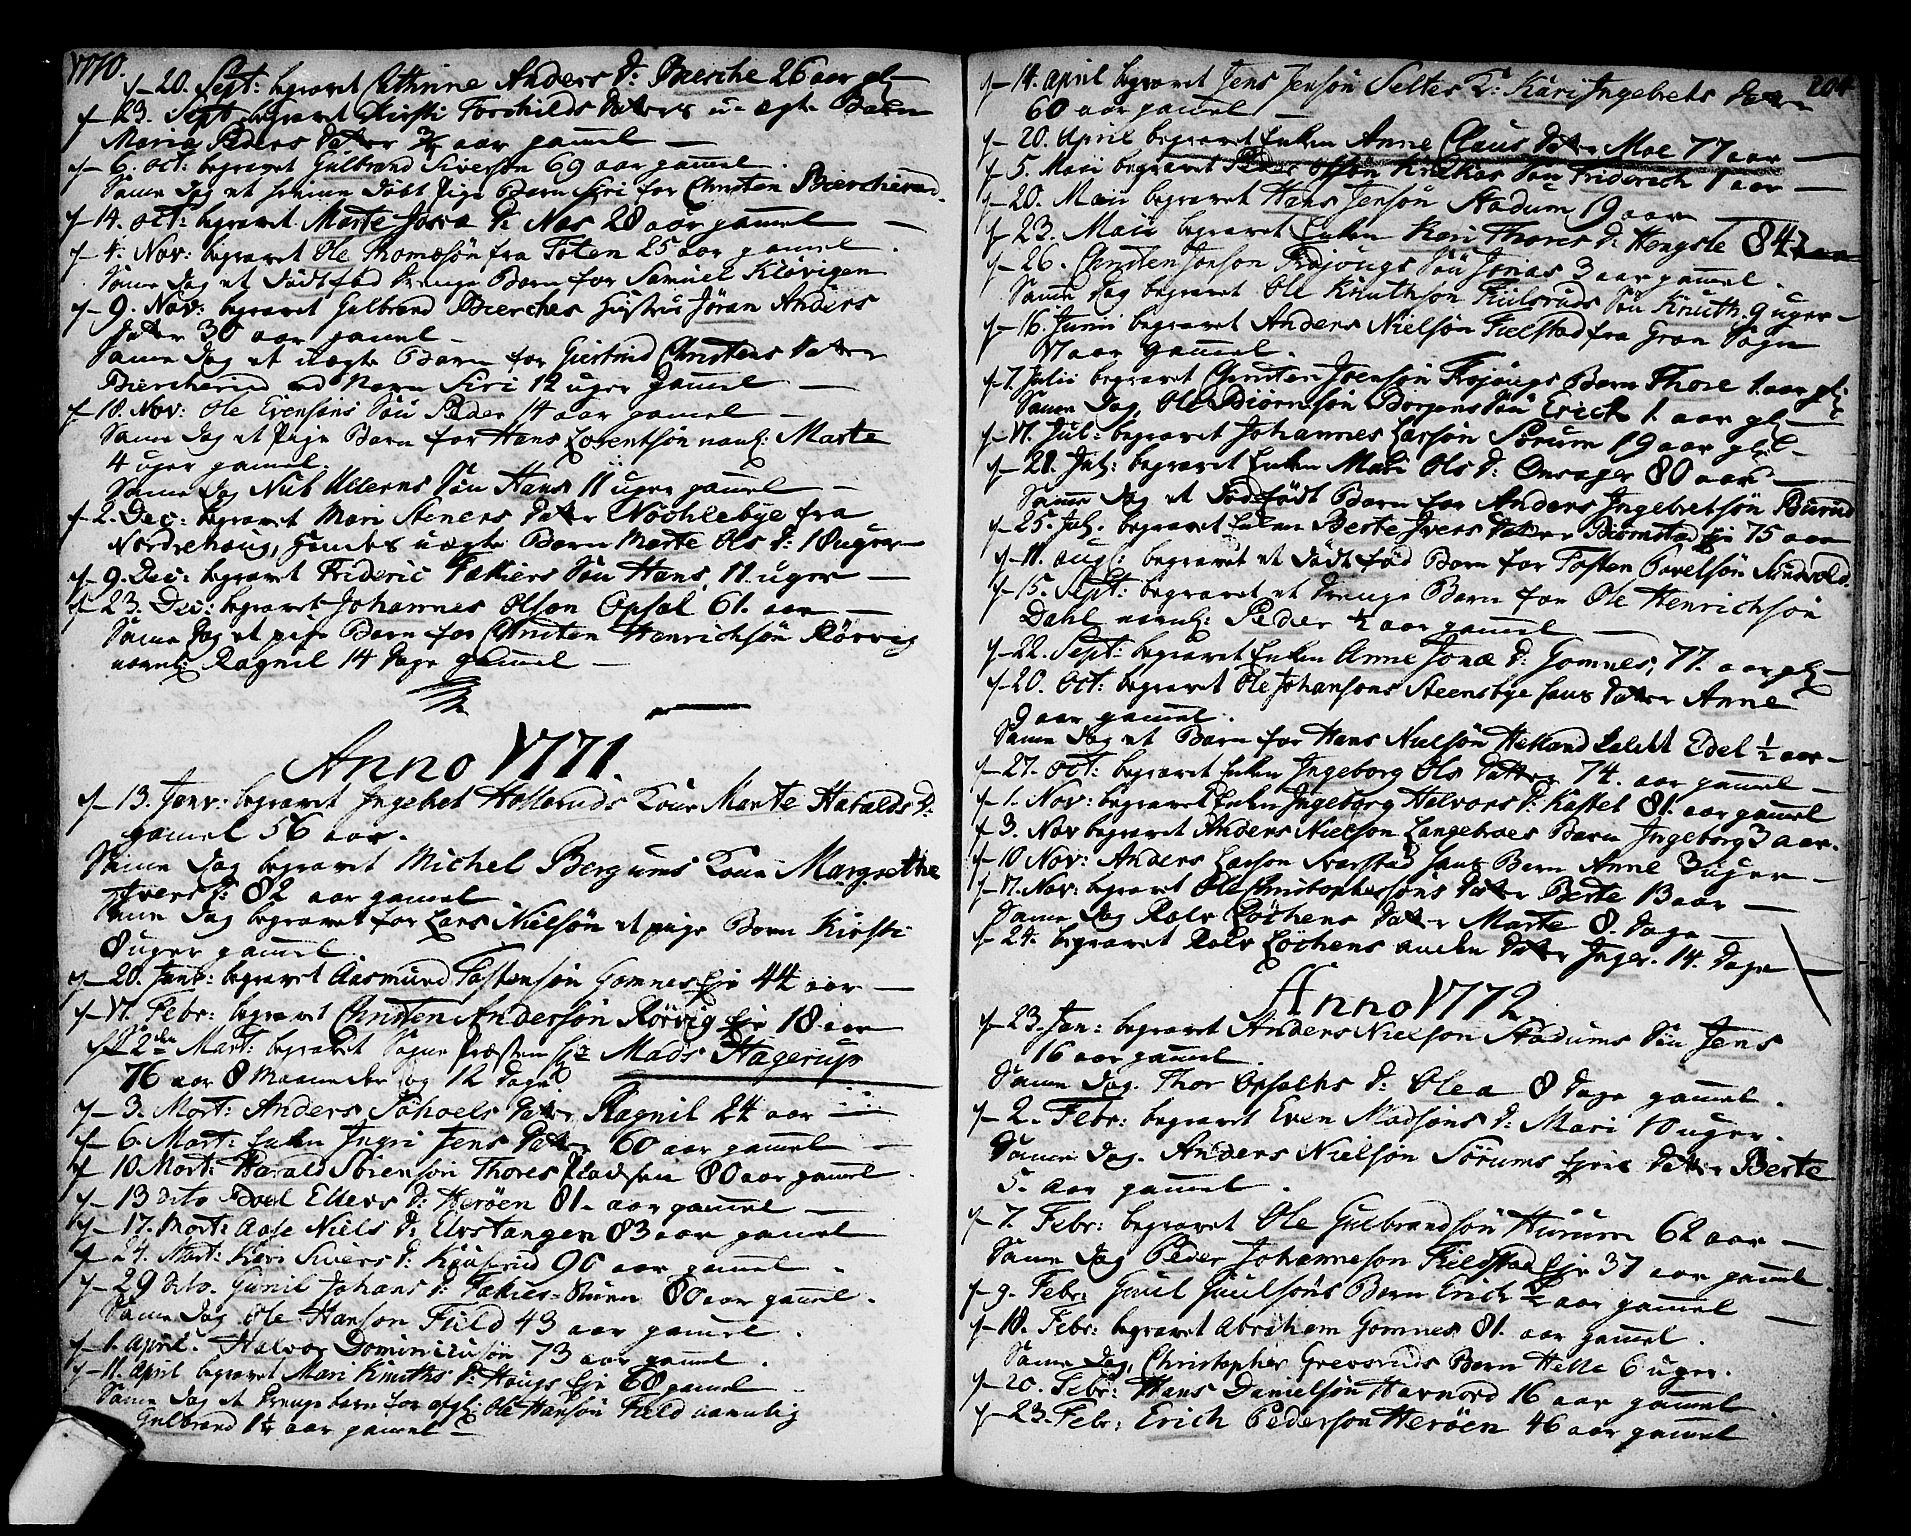 1770.
d- 20. Sept: begravet Cathrine Anders D: Bierche 26 aar gl-
d- 23. Sept begravet Kirsti Torchilds Daters u-ægte Barn
Maria Peders Dater 3/4 aar gamel -
d- 6. oct: begravet Gulbrand Siversøn 69 aar gamel.
Same Dag et hiemme Døbt Pige Barn Siri for Christen Biercherud.
d- 14. oct: begravet Marte Josva D: Næs 28 aar gamel -
d- 4. Nov: begravet Ole Thomæsøn fra Toten 25 aar gamel.
Same Dag et Dødfød Drenge Barn for Samuel Kløvigen
d- 9. Nov: begravet Gulbrand Bierches Hustru Jøran Anders
Dater 30 aar gamel -
Same Dag et uægte Barn for Giertrud Christens Dater
Biercherud ved Navn Siri 12 uger gamel -
d- 18. Nov: Ole Evensøns Søn Peder 14 aar gamel -
Same Dag et Pige Barn for Hans Lorentsøn navnl: Marte
4 uger gamel.
Same Dag Nub Ullerns Søn Hans 11 uger gamel -
d- 2. Dec: begravet Mari Steners Dater Nochlebye fra
Nordrehoug, hendes uægte Barn Marte Ols D: 18 uger -
d- 9. Dec: begravet Frideric Fakiers Søn Hans 11. uger -
d- 23. Dec: begravet Johannes Olson Opsal 61. aar -
Same Dag et pige Barn for Christen Henrichsøn Rørvig
navnl: Ragnil 14 Dage gamel -
Anno 1771.
d- 13. Janv: begravet Ingebret Holleruds Kone Marte Haralds D:
gamel 56 aar.
Same Dag begravet Michel Bergums Kone Margrethe
Ivers D: 82 aar gamel
Same Dag begravet for Lars Nielsøn et pige Barn Kirsti
8 uger gamel.
d- 20. Janv: begravet Aasmund Tostensøn Gomnes Eje 44 aar -
d- 17. Febr: begravet Christen Andersøn Rørvig Eje 18 aar
d- 2den Mart: begravet Sogne Præsten Hr Mads Hagerup
76 aar 8 Maaneder og 12 Dage
d- 3. Mart: Anders Sohoels Dater Ragnil 24 aar -
d- 6. Mart: Enken Ingri Jens Dater 60 aar gamel -
d- 10 Mart: Harald Sørensøn Thores Pladsen 80 aar gamel.
d- 13 dito Bodel Ellevs D: Herøen 81. aar gamel -
d- 17. Mart: Aase Niels D: Elvstangen 83 aar gamel
d- 24. Mart: Kari Sivers D: 90 aar gamel -
d- 29 dito. Gunil Johans D: Fakies-Stuen 80 aar gamel -
Same Dag Ole Hanson Field 43 aar gamel.
d- 1. April. Halvor Dominicusøn 73 aar gamel.
d- 11. April begravet Mari Knuths D: Houg Eje 68 gamel -
Same Dag et Drenge barn for afgl: Ole Hansøn Field navnlig
Gulbrand 1 1/4 aar gamel -
204
d- 14. april begravet Jens Jensøn Seltes K: Kari Ingebrets Dater
60 aar gamel -
d- 20. April begravet Enken Anne Claus Dater Moe 77 aar -
d- 5. Maii begravet Peder Olsøn Søn Friderich 1 aar -
d- 20. Maii begravet Hans Jensøn Stadum 19 aar -
d- 23. Maii begravet Enken Kari Thores D: Hengsle 84 aar
d- 26. Christen Jonson Frøjougs Søn Jonas 3 aar gamel.
Same Dag begravet Ole Knuthson Fielsruds Søn Knuth. 9 uger -
d- 16. Junii begravet Anders Nielsøn Fielstad fra Gran Sogn
17 aar gamel.
d- 7. Julii begravet Christen Joensøn Frøjougs Barn Thore 1. aar gl:
Same Dag, Ole Biørnsøn Borgens Søn Erich 1. aar gl -
d- 17. Jul: begravet Johannes Larsøn Sørum 19 aar gl -
d- 21. Jul: begravet Enken Mari Ols D: Onsager 80 aar -
Same Dag et Dødfødt Barn for Anders Ingebretsøn Burud
d- 25. Jul. begravet Enken Berte Ivers Dater Biørnstad Eje 75 aar
d- 11. aug: begravet et Dødt fød Barn for Tosten Povelsøn Sundvold.
d- 15. Sept: begravet et Drenge Barn for Ole Henrichsøn
Dahl navnl: Peder 1/2 aar gamel -
d- 22. Sept: begravet Enken Anne Jonæ D: Gomnes, 77. aar gl -
d- 20. Oct: begravet Ole Johansons Steensbye hans Dater Anne
9 aar gamel.
Same Dag et Barn for Hans Nielsøn Helland kaldet Edel 1/2 aar -
d- 27. oct: begravet Enken Ingeborg Ols Datter 74. aar gamel -
d- 1. Nov: begravet Enken Ingeborg Helvors D: Kattel 81. aar gamel
d 3. Nov begravet Anders Nielsøn Langebroes Barn Ingeborg 3 aar.
d- 10 Nov: Anders Larson Svarstad hans Barn Anne 3 uger -
d- 17. Nov: begravet Ole Christophersøns Dater Berte 13 aar -
Same Dag Rolv Løchens Dater Marte 8. Dage -
d- 24. begravet Rolv Løchens anden Dater Inger. 14. Dage -
Anno 1772.
d- 23. Jan: begravet Anders Nielson Stadums Søn Jens
16 aar gamel.
Same Dag. Thor Opsalths D: Olea 8 Dage gamel.
d- 2. Febr: begravet Even Madsøns D: Mari 10 uger.
Same Dag. Anders Nielsøn Sørums Eje Datter Berte
5. aar gamel.
d- 7. Febr: begravet Ole Gulbrandsøn Hurum 62 aar -
Same Dag Peder Johanneson Fielstad Eje 37 aar gamel
d- 9. Febr: Guul Guulsøns Barn Erich 1/2 aar gamel
d- 18. Febr: begravet Abraham Gomnes 81. aar gamel.
Same Dag, Christopher Grevsruds Barn Helle 6 uger.
d- 20. Febr: Hans Danielsøn Havnord 16 aar gamel
d- 23. Febr: Erich Pederson Herøen 46 aar gamel